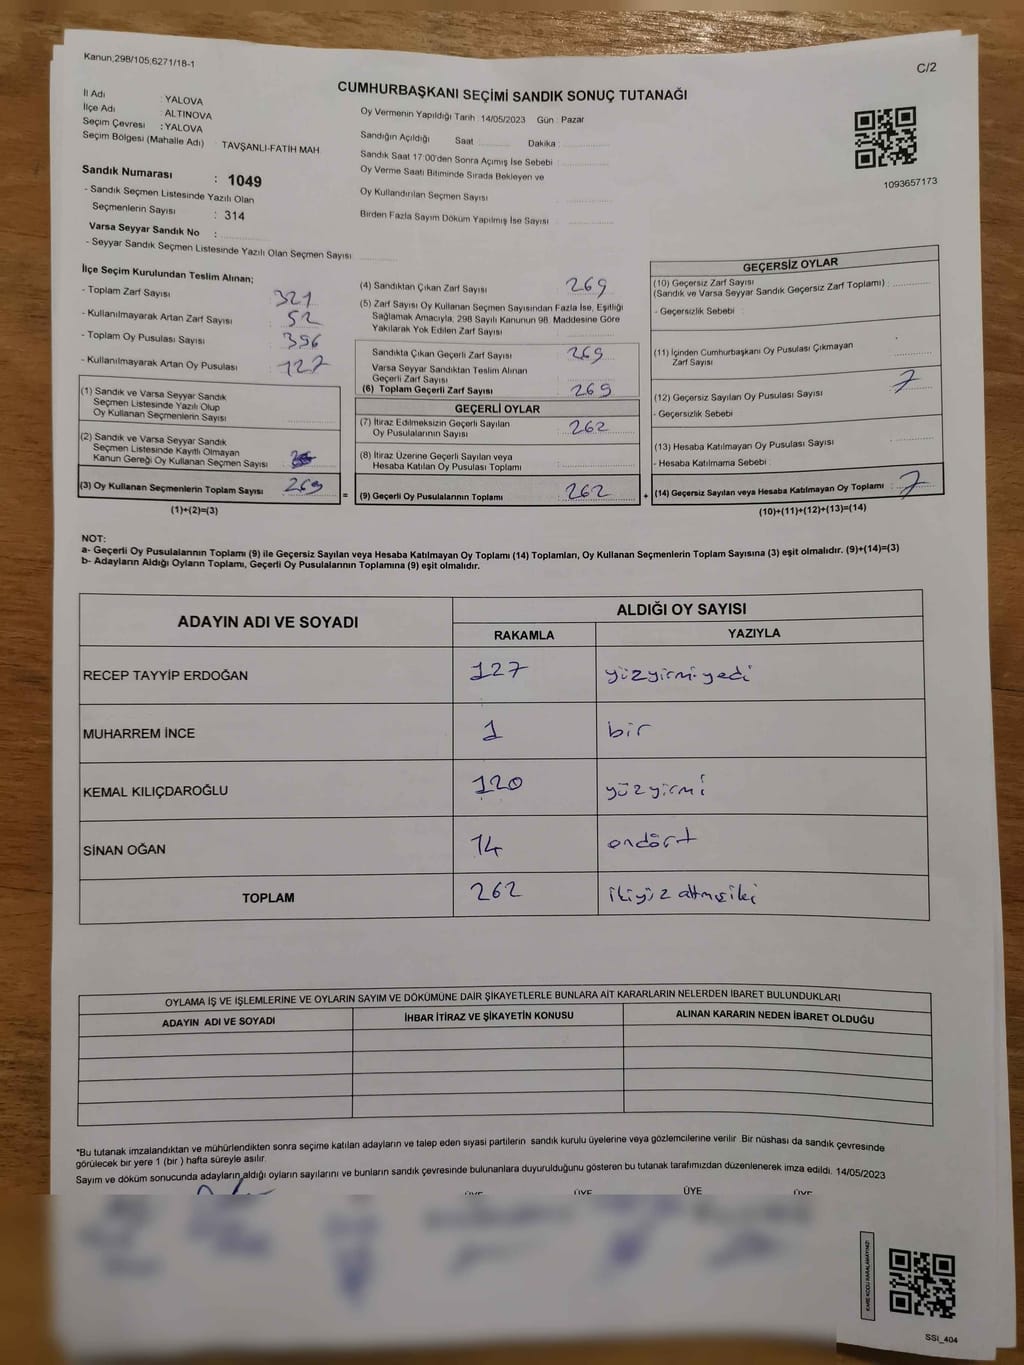 Kanun,298/105,6271/18-1
C/2
CUMHURBAŞKANI SEÇİMİ SANDIK SONUÇ TUTANAĞI
İl Adı : YALOVA
İlçe Adı : ALTINOVA
Seçim Çevresi : YALOVA
Seçim Bölgesi (Mahalle Adı) TAVŞANLI-FATİH MAH
Sandık Numarası : 1049
- Sandık Seçmen Listesinde Yazılı Olan
Seçmenlerin Sayısı : 314
Varsa Seyyar Sandık No :
- Seyyar Sandık Seçmen Listesinde Yazılı Olan Seçmen Sayısı
Oy Vermenin Yapıldığı Tarih : 14/05/2023 Gün : Pazar
Sandığın Açıldığı Saat Dakika
Sandık Saat 17:00'den Sonra Açımış İse Sebebi
Oy Verme Saati Bitiminde Sırada Bekleyen ve
Oy Kullandırılan Seçmen Sayısı
Birden Fazla Sayım Döküm Yapılmış İse Sayısı
1093657173
İlçe Seçim Kurulundan Teslim Alınan;
- Toplam Zarf Sayısı 321
- Kullanılmayarak Artan Zarf Sayısı 52
- Toplam Oy Pusulası Sayısı 396
- Kullanılmayarak Artan Oy Pusulası 127
(1) Sandık ve Varsa Seyyar Sandık
Seçmen Listesinde Yazılı Olup
Oy Kullanan Seçmenlerin Sayısı
(2) Sandık ve Varsa Seyyar Sandık
Seçmen Listesinde Kayıtlı Olmayan
Kanun Gereği Oy Kullanan Seçmen Sayısı
(3) Oy Kullanan Seçmenlerin Toplam Sayısı 269 =
(1)+(2)=(3)
(4) Sandıktan Çıkan Zarf Sayısı 269
(5) Zarf Sayısı Oy Kullanan Seçmen Sayısından Fazla İse, Eşitliği
Sağlamak Amacıyla, 298 Sayılı Kanunun 98. Maddesine Göre
Yakılarak Yok Edilen Zarf Sayısı
Sandıkta Çıkan Geçerli Zarf Sayısı 269
Varsa Seyyar Sandıktan Teslim Alınan
Geçerli Zarf Sayısı
(6) Toplam Geçerli Zarf Sayısı 269
GEÇERLİ OYLAR
(7) İtiraz Edilmeksizin Geçerli Sayılan
Oy Pusulalarının Sayısı 262
(8) İtiraz Üzerine Geçerli Sayılan veya
Hesaba Katılan Oy Pusulası Toplamı
(9) Geçerli Oy Pusulalarının Toplamı 262 +
GEÇERSİZ OYLAR
(10) Geçersiz Zarf Sayısı
(Sandık ve Varsa Seyyar Sandık Geçersiz Zarf Toplamı) :
- Geçersizlik Sebebi :
(11) İçinden Cumhurbaşkanı Oy Pusulası Çıkmayan
Zarf Sayısı
(12) Geçersiz Sayılan Oy Pusulası Sayısı 7
- Geçersizlik Sebebi
(13) Hesaba Katılmayan Oy Pusulası Sayısı
- Hesaba Katılmama Sebebi
(14) Geçersiz Sayılan veya Hesaba Katılmayan Oy Toplamı 7
(10)+(11)+(12)+(13)=(14)
NOT:
a- Geçerli Oy Pusulalarının Toplamı (9) ile Geçersiz Sayılan veya Hesaba Katılmayan Oy Toplamı (14) Toplamları, Oy Kullanan Seçmenlerin Toplam Sayısına (3) eşit olmalıdır. (9)+(14)=(3)
b- Adayların Aldığı Oyların Toplamı, Geçerli Oy Pusulalarının Toplamına (9) eşit olmalıdır.
ADAYIN ADI VE SOYADI ALDIĞI OY SAYISI
RAKAMLA YAZIYLA
RECEP TAYYİP ERDOĞAN 127 yüzyirmiyedi
MUHARREM İNCE 1 bir
KEMAL KILIÇDAROĞLU 120 yüzyirmi
SİNAN OĞAN 14 ondört
TOPLAM 262 ikiyüz altmışiki
OYLAMA İŞ VE İŞLEMLERİNE VE OYLARIN SAYIM VE DÖKÜMÜNE DAİR ŞİKAYETLERLE BUNLARA AİT KARARLARIN NELERDEN İBARET BULUNDUKLARI
ADAYIN ADI VE SOYADI İHBAR İTİRAZ VE ŞİKAYETİN KONUSU ALINAN KARARIN NEDEN İBARET OLDUĞU
*Bu tutanak imzalandıktan ve mühürlendikten sonra seçime katılan adayların ve talep eden siyasi partilerin sandık kurulu üyelerine veya gözlemcilerine verilir. Bir nüshası da sandık çevresinde
görülecek bir yere 1 (bir ) hafta süreyle asılır.
Sayım ve döküm sonucunda adayların aldığı oyların sayılarını ve bunların sandık çevresinde bulunanlara duyurulduğunu gösteren bu tutanak tarafımızdan düzenlenerek imza edildi. 14/05/2023
ÜYE ÜYE ÜYE ÜYE
SSİ_404